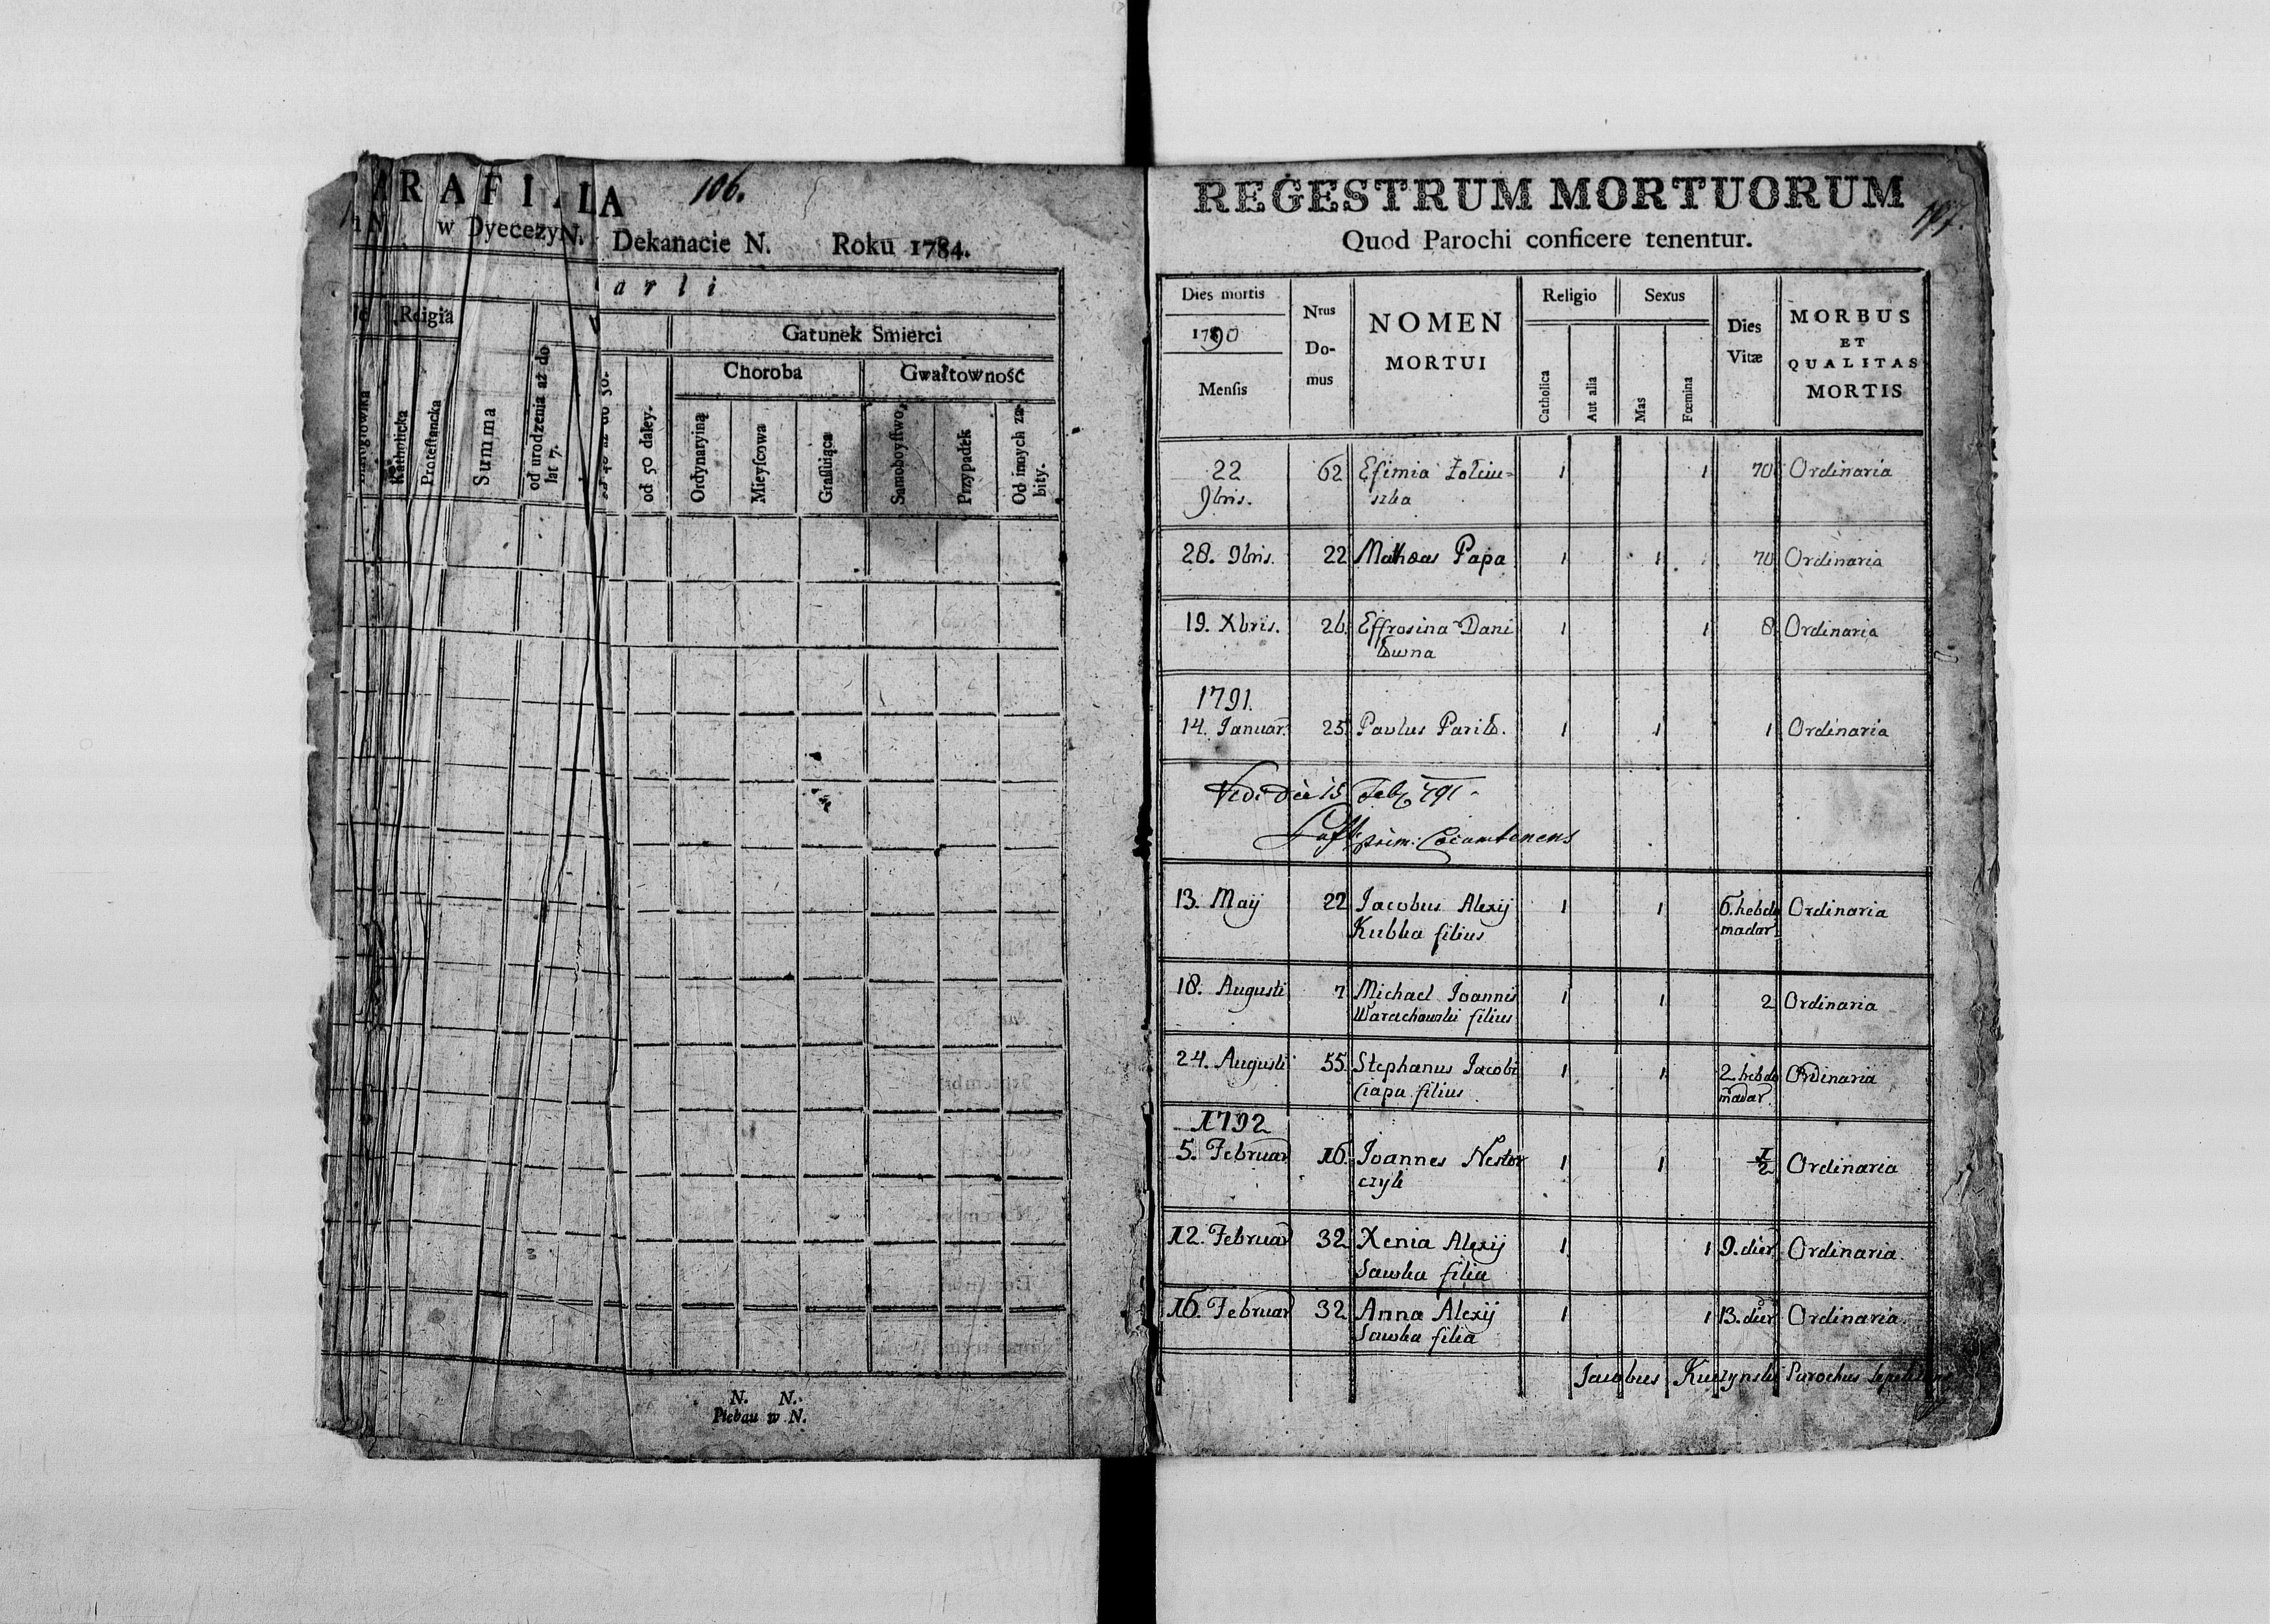 ARAFIALA
106.
w Dyecezyi N. Dekanacie N. Roku 1784.
arli
Religia
Gatunek Smierci
Choroba
Gwałtowność
Katholicka
Protestancka
Summa
od urodzenia aż do lat 7.
od 40 aż do 50.
od 50 daley.
Ordynaryiną
Mieyscowa
Grassuiąca
Samoboystwo,
Przypadek
Od innych zabity.
N. N.
Pleban w N.
REGESTRUM MORTUORUM
107.
Quod Parochi conficere tenentur.
Dies mortis
1790
Mensis
Nrus Domus
NOMEN MORTUI
Religio
Catholica
Aut alia
Sexus
Mas
Fœmina
Dies Vitæ
MORBUS ET QUALITAS MORTIS
22 62 Efimia 1 1 70 Ordinaria
9bris. szka
28. 9bris. 22 Papa 1 1 70 Ordinaria
19. Xbris. 26. Effrosina Dani 1 1 8 Ordinaria
łowna
1791.
14. Januar. 25. Paulus 1 1 1 Ordinaria
Vidi die 15 Feb. 791
13. Maij 22 Jacobus Alexij 1 1 6. hebdo Ordinaria
Kubka filius madar.
18. Augusti 7 Michael Joannis 1 1 2 Ordinaria
filius
24. Augusti 55. Stephanus Jacobi 1 1 2 hebdo Ordinaria
Czapa filius madar.
1792
5. Februar. 16. Joannes Nestor 1 1 1/2 Ordinaria
czyk
12. Februar 32 Xenia Alexij 1 1 9. dier. Ordinaria
Sawka filia
16. Februar 32 Anna Alexij 1 1 13. dier. Ordinaria
Sawka filia
Jacobus Kuczynski Parochus